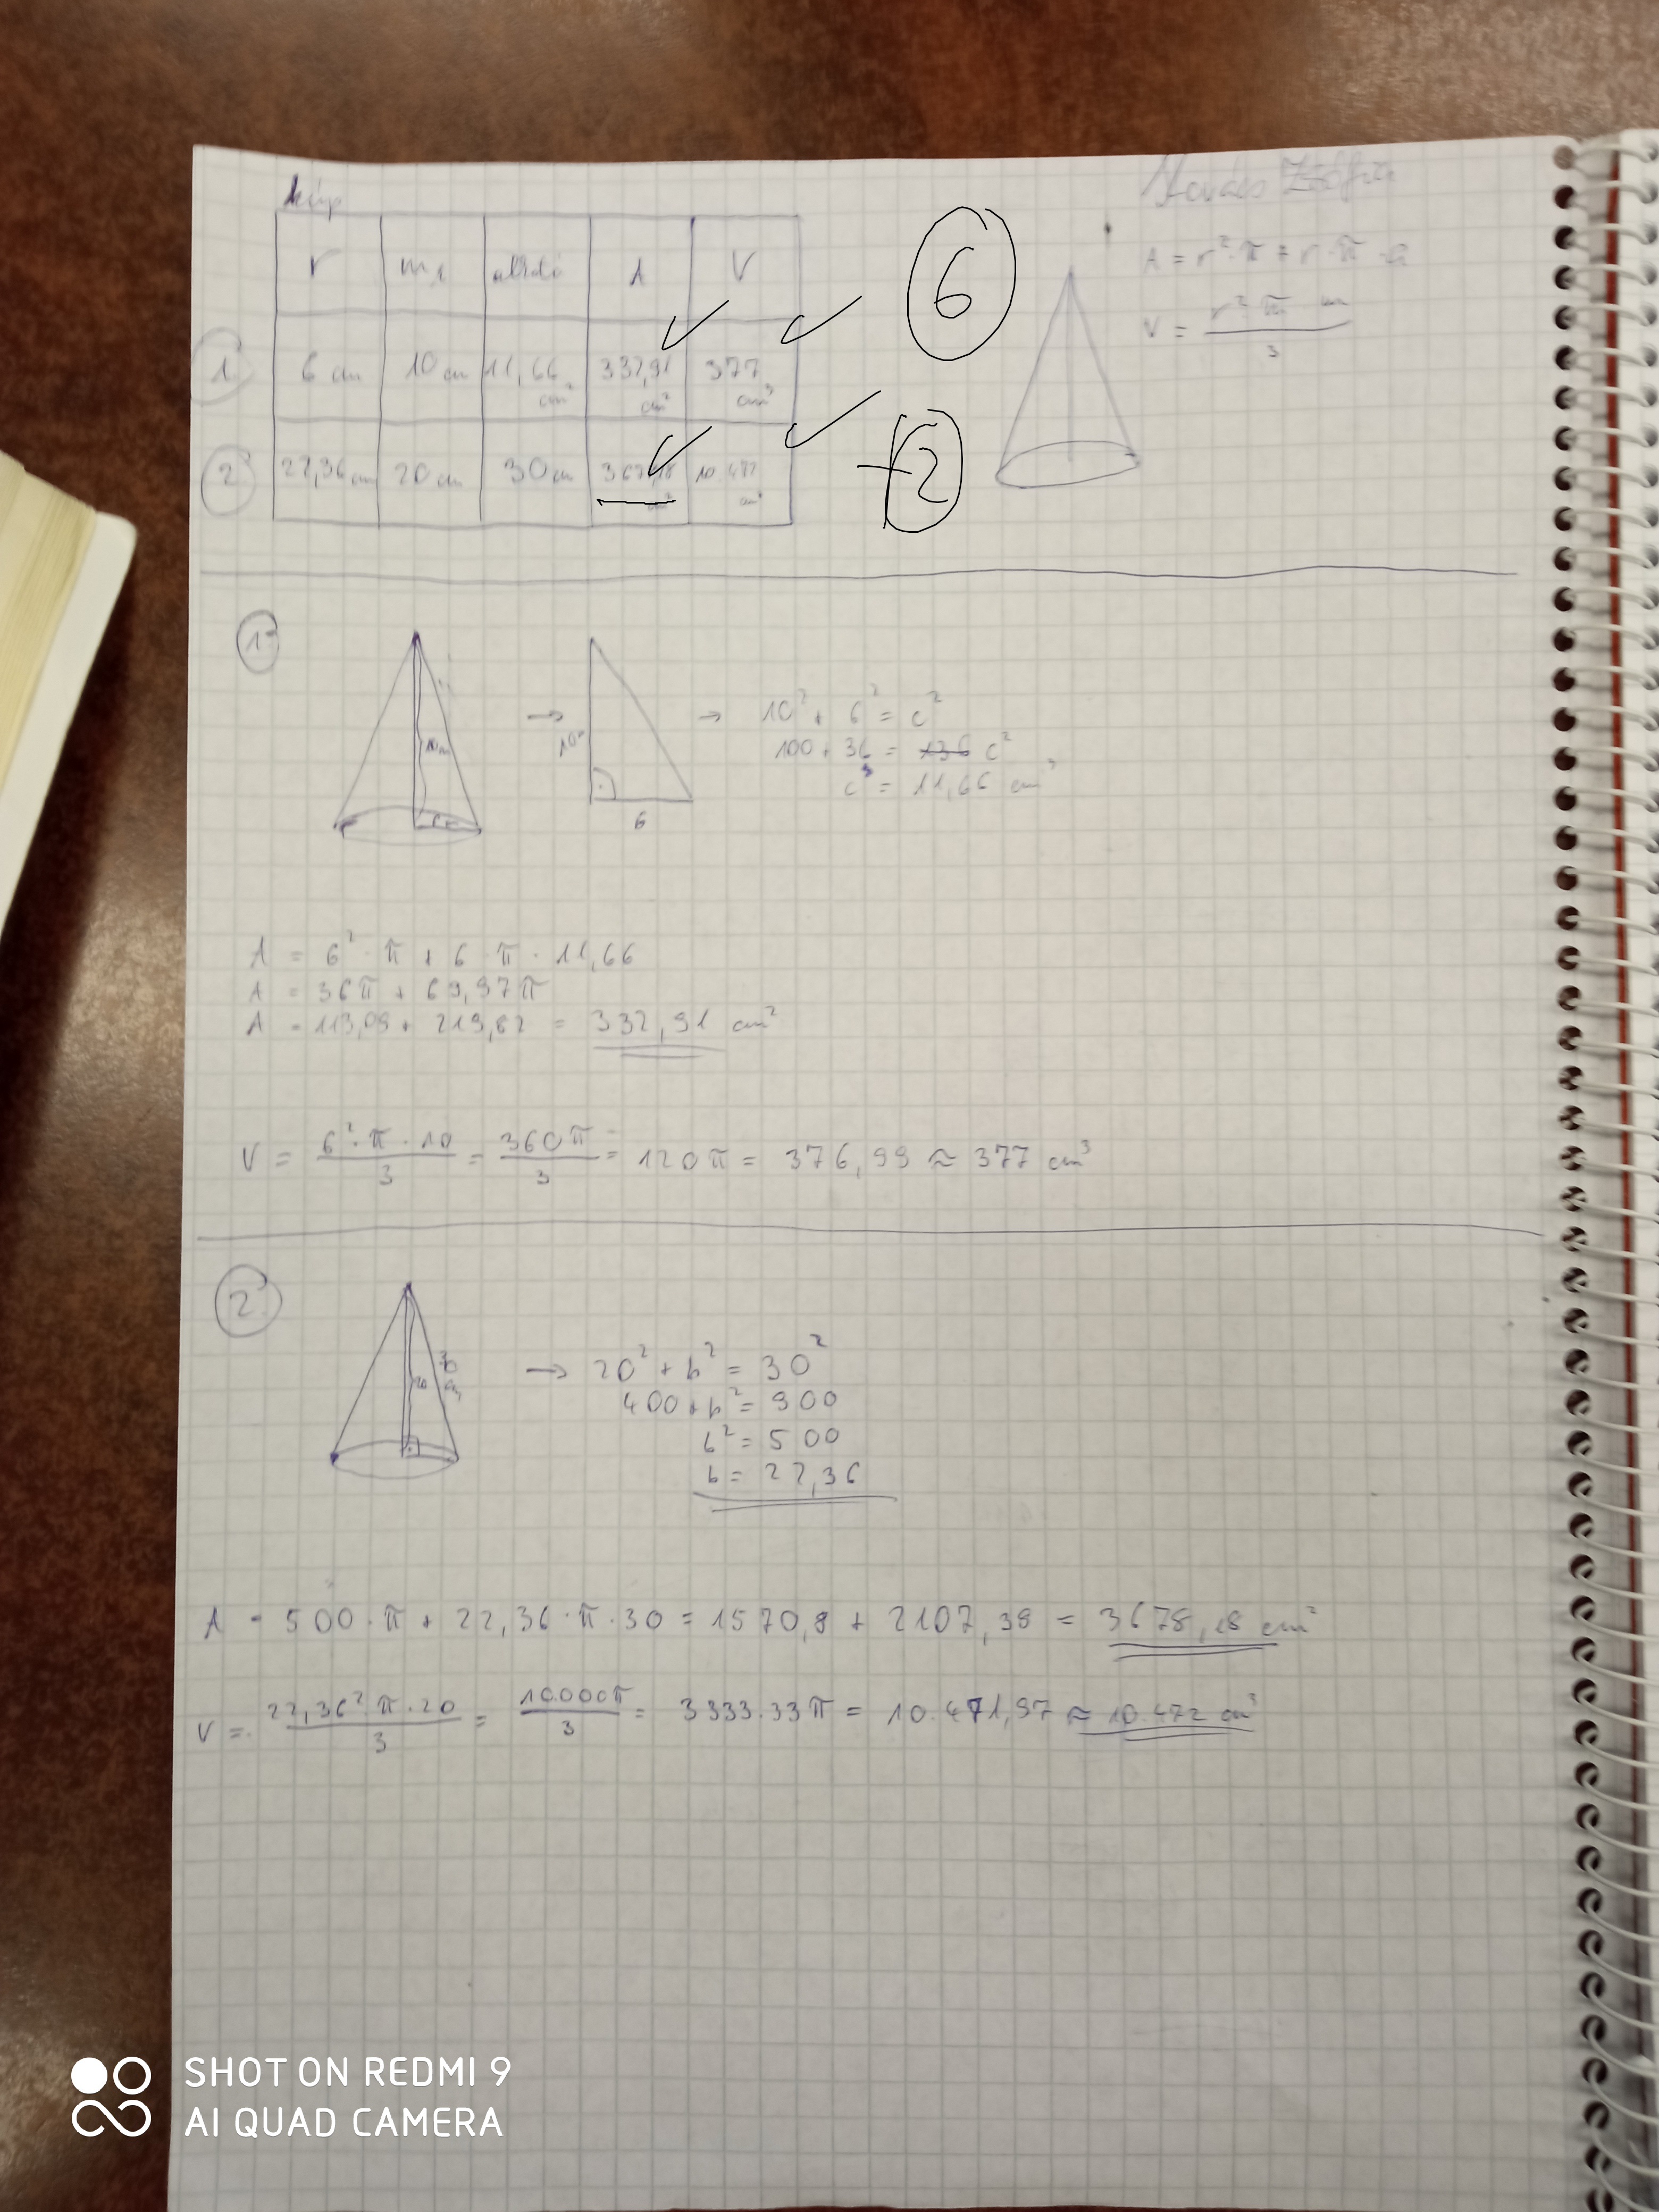 kúp
Kovács Zsófia
r m₁ alkotó A V
6
A = r² · π + r · π · a
V = r² · π · m / 3
1. 6 cm 10 cm 11,66 cm² 332,91 cm² 377 cm³
2. 22,36 cm 20 cm 30 cm 10.472 cm³
+2
1.
10 cm
10
6
→ → 10² + 6² = c²
100 + 36 = 136 c²
= 11,66 cm
A = 6² · π + 6 · π · 11,66
A = 36π + 69,97π
A = 113,09 + 219,82 = 332,91 cm²
V = 6² · π · 10 / 3 = 360π / 3 = 120π = 376,99 ≈ 377 cm³
2.
20
30 cm
→ 20² + b² = 30²
400 + b² = 900
b² = 500
b = 22,36
A = 500 · π + 22,36 · π · 30 = 1570,8 + 2107,38 = 3678,18 cm²
V = 22,36² · π · 20 / 3 = 10.000π / 3 = 3333.33π = 10.471,97 ≈ 10.472 cm³
SHOT ON REDMI 9
AI QUAD CAMERA